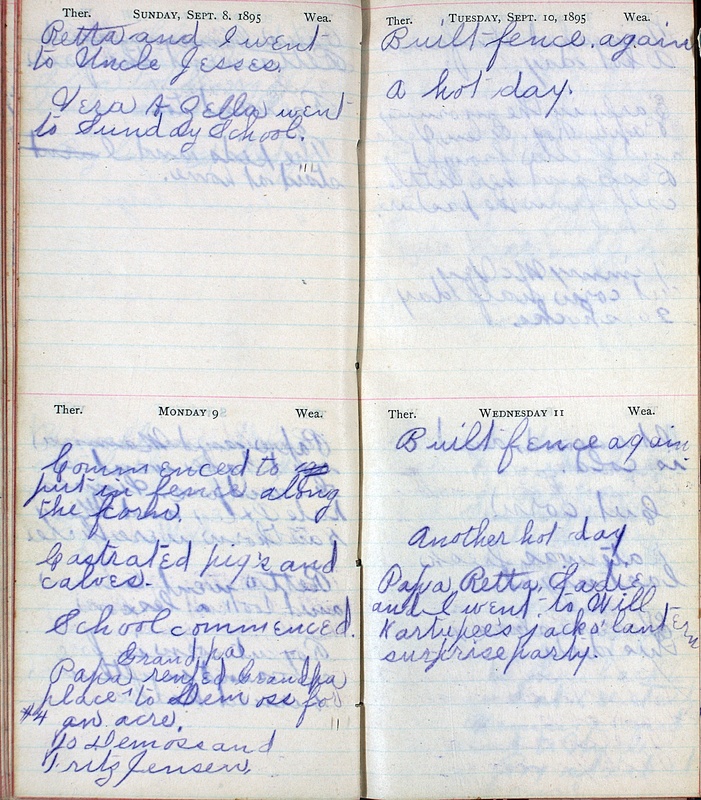 Ther. SUNDAY, SEPT. 8, 1895 Wea.
Retta and I went
to Uncle Jesses.
Vera & Della went
to Sunday School.
Ther. MONDAY 9 Wea.
Commenced to
put in fence along
the corn.
Castrated pig's and
calves.
School commenced.
Grandpa
Papa rented Grandpa
place to Demoss for
#4 an acre.
To Demoss and
Fritz Jensen,
Ther. TUESDAY, SEPT. 10, 1895 Wea.
Built fence. again
a hot day.
Ther. WEDNESDAY 11 Wea.
Built fence again
Another hot day
Papa, Retta,
and I went to Will
jacko'lantern
surprise party.